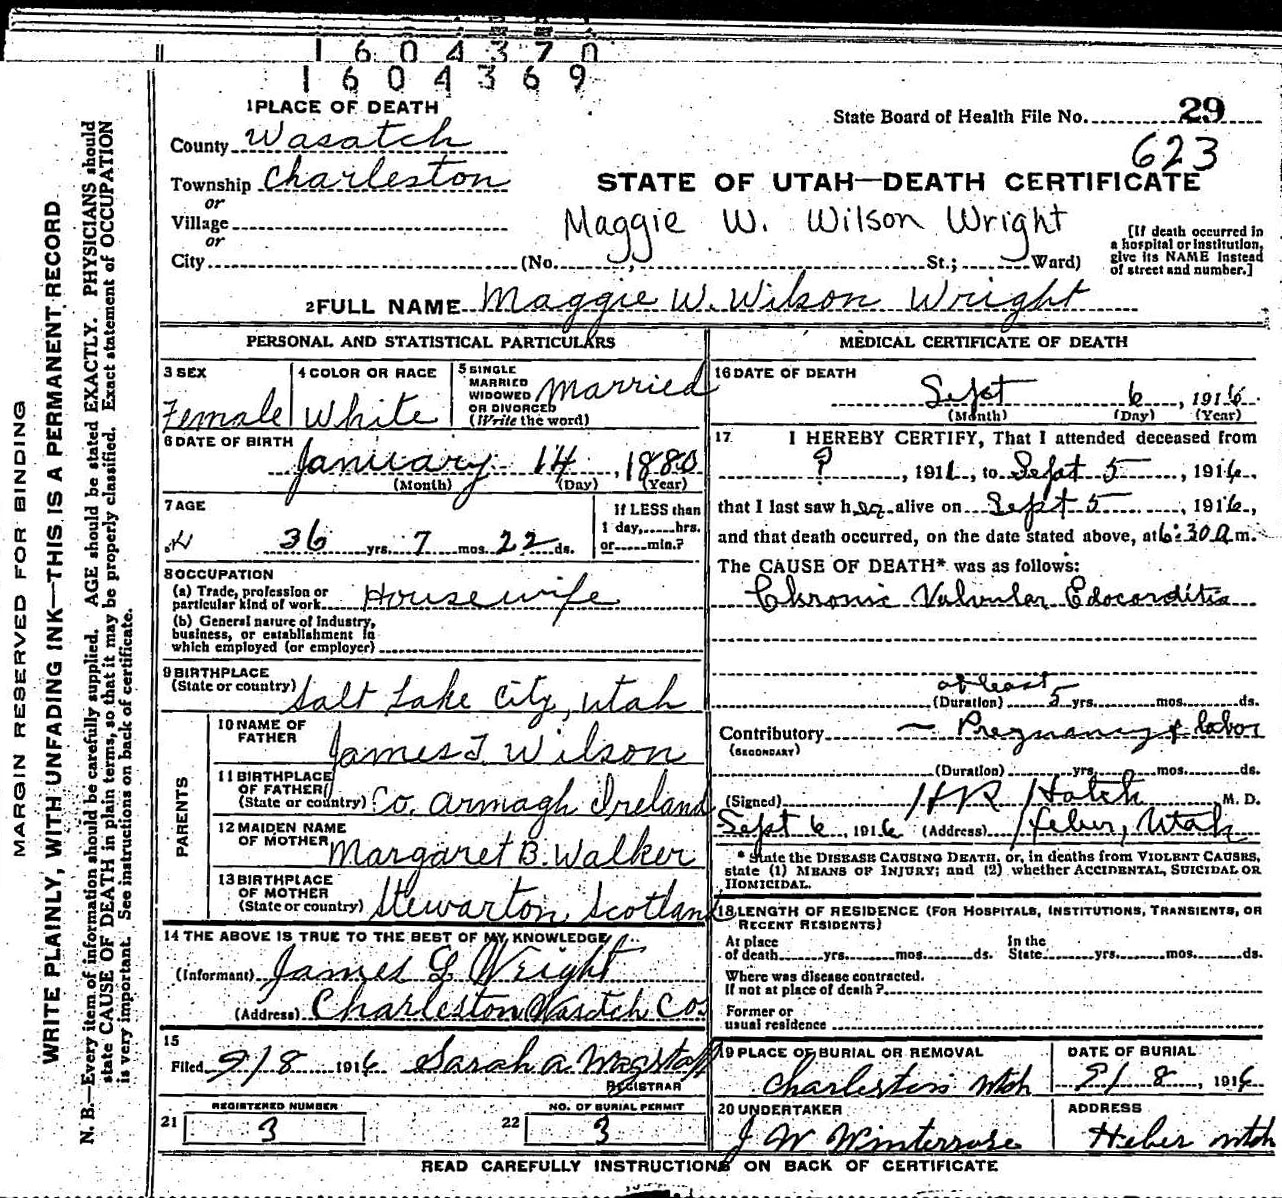 1604370
1604369
1 PLACE OF DEATH
State Board of Health File No. 29
623
County Wasatch
Township Charleston
or
Village
or
City (No. , St.; Ward)
STATE OF UTAH—DEATH CERTIFICATE
Maggie W. Wilson Wright
[If death occurred in
a hospital or institution,
give its NAME instead
of street and number.]
2 FULL NAME Maggie W. Wilson Wright
PERSONAL AND STATISTICAL PARTICULARS
3 SEX
Female
4 COLOR OR RACE
White
5 SINGLE
MARRIED
WIDOWED
OR DIVORCED
(Write the word)
Married
6 DATE OF BIRTH
January 14, 1880
(Month) (Day) (Year)
7 AGE
36 yrs. 7 mos. 22 ds.
If LESS than
1 day, hrs.
or min.?
8 OCCUPATION
(a) Trade, profession or
particular kind of work Housewife
(b) General nature of industry,
business, or establishment in
which employed (or employer)
9 BIRTHPLACE
(State or country) Salt Lake City, Utah
PARENTS
10 NAME OF
FATHER James T. Wilson
11 BIRTHPLACE
OF FATHER
(State or country) Co. Armagh Ireland
12 MAIDEN NAME
OF MOTHER Margaret B. Walker
13 BIRTHPLACE
OF MOTHER
(State or country) Stewarton Scotland
14 THE ABOVE IS TRUE TO THE BEST OF MY KNOWLEDGE
(Informant) James G. Wright
(Address) Charleston Wasatch Co.
15
Filed 9/8 1916 Sarah A.
REGISTRAR
REGISTERED NUMBER
21 3
NO. OF BURIAL PERMIT
22 3
MEDICAL CERTIFICATE OF DEATH
16 DATE OF DEATH
Sept 6, 1916
(Month) (Day) (Year)
17 I HEREBY CERTIFY, That I attended deceased from
?, 1911, to Sept 5, 1916,
that I last saw her alive on Sept 5, 1916,
and that death occurred, on the date stated above, at 6:30 a m.
The CAUSE OF DEATH* was as follows:
Chronic Valvular Edocarditis
at least
(Duration) 5 yrs. mos. ds.
Contributory — Pregnancy & labor
(SECONDARY)
(Duration) yrs. mos. ds.
(Signed) H R Hatch M. D.
Sept 6, 1916 (Address) Heber, Utah
* State the DISEASE CAUSING DEATH, or, in deaths from VIOLENT CAUSES,
state (1) MEANS OF INJURY; and (2) whether ACCIDENTAL, SUICIDAL OR
HOMICIDAL.
18 LENGTH OF RESIDENCE (FOR HOSPITALS, INSTITUTIONS, TRANSIENTS, OR
RECENT RESIDENTS)
At place
of death yrs. mos. ds.
In the
State yrs. mos. ds.
Where was disease contracted.
If not at place of death?
Former or
usual residence
19 PLACE OF BURIAL OR REMOVAL
Charleston Utah
DATE OF BURIAL
9/8, 1916
20 UNDERTAKER
J W Winterrose
ADDRESS
Heber Utah
READ CAREFULLY INSTRUCTIONS ON BACK OF CERTIFICATE
MARGIN RESERVED FOR BINDING
WRITE PLAINLY, WITH UNFADING INK—THIS IS A PERMANENT RECORD
N. B.—Every item of information should be carefully supplied. AGE should be stated EXACTLY. PHYSICIANS should
state CAUSE OF DEATH in plain terms, so that it may be properly classified. Exact statement of OCCUPATION
is very important. See instructions on back of certificate.